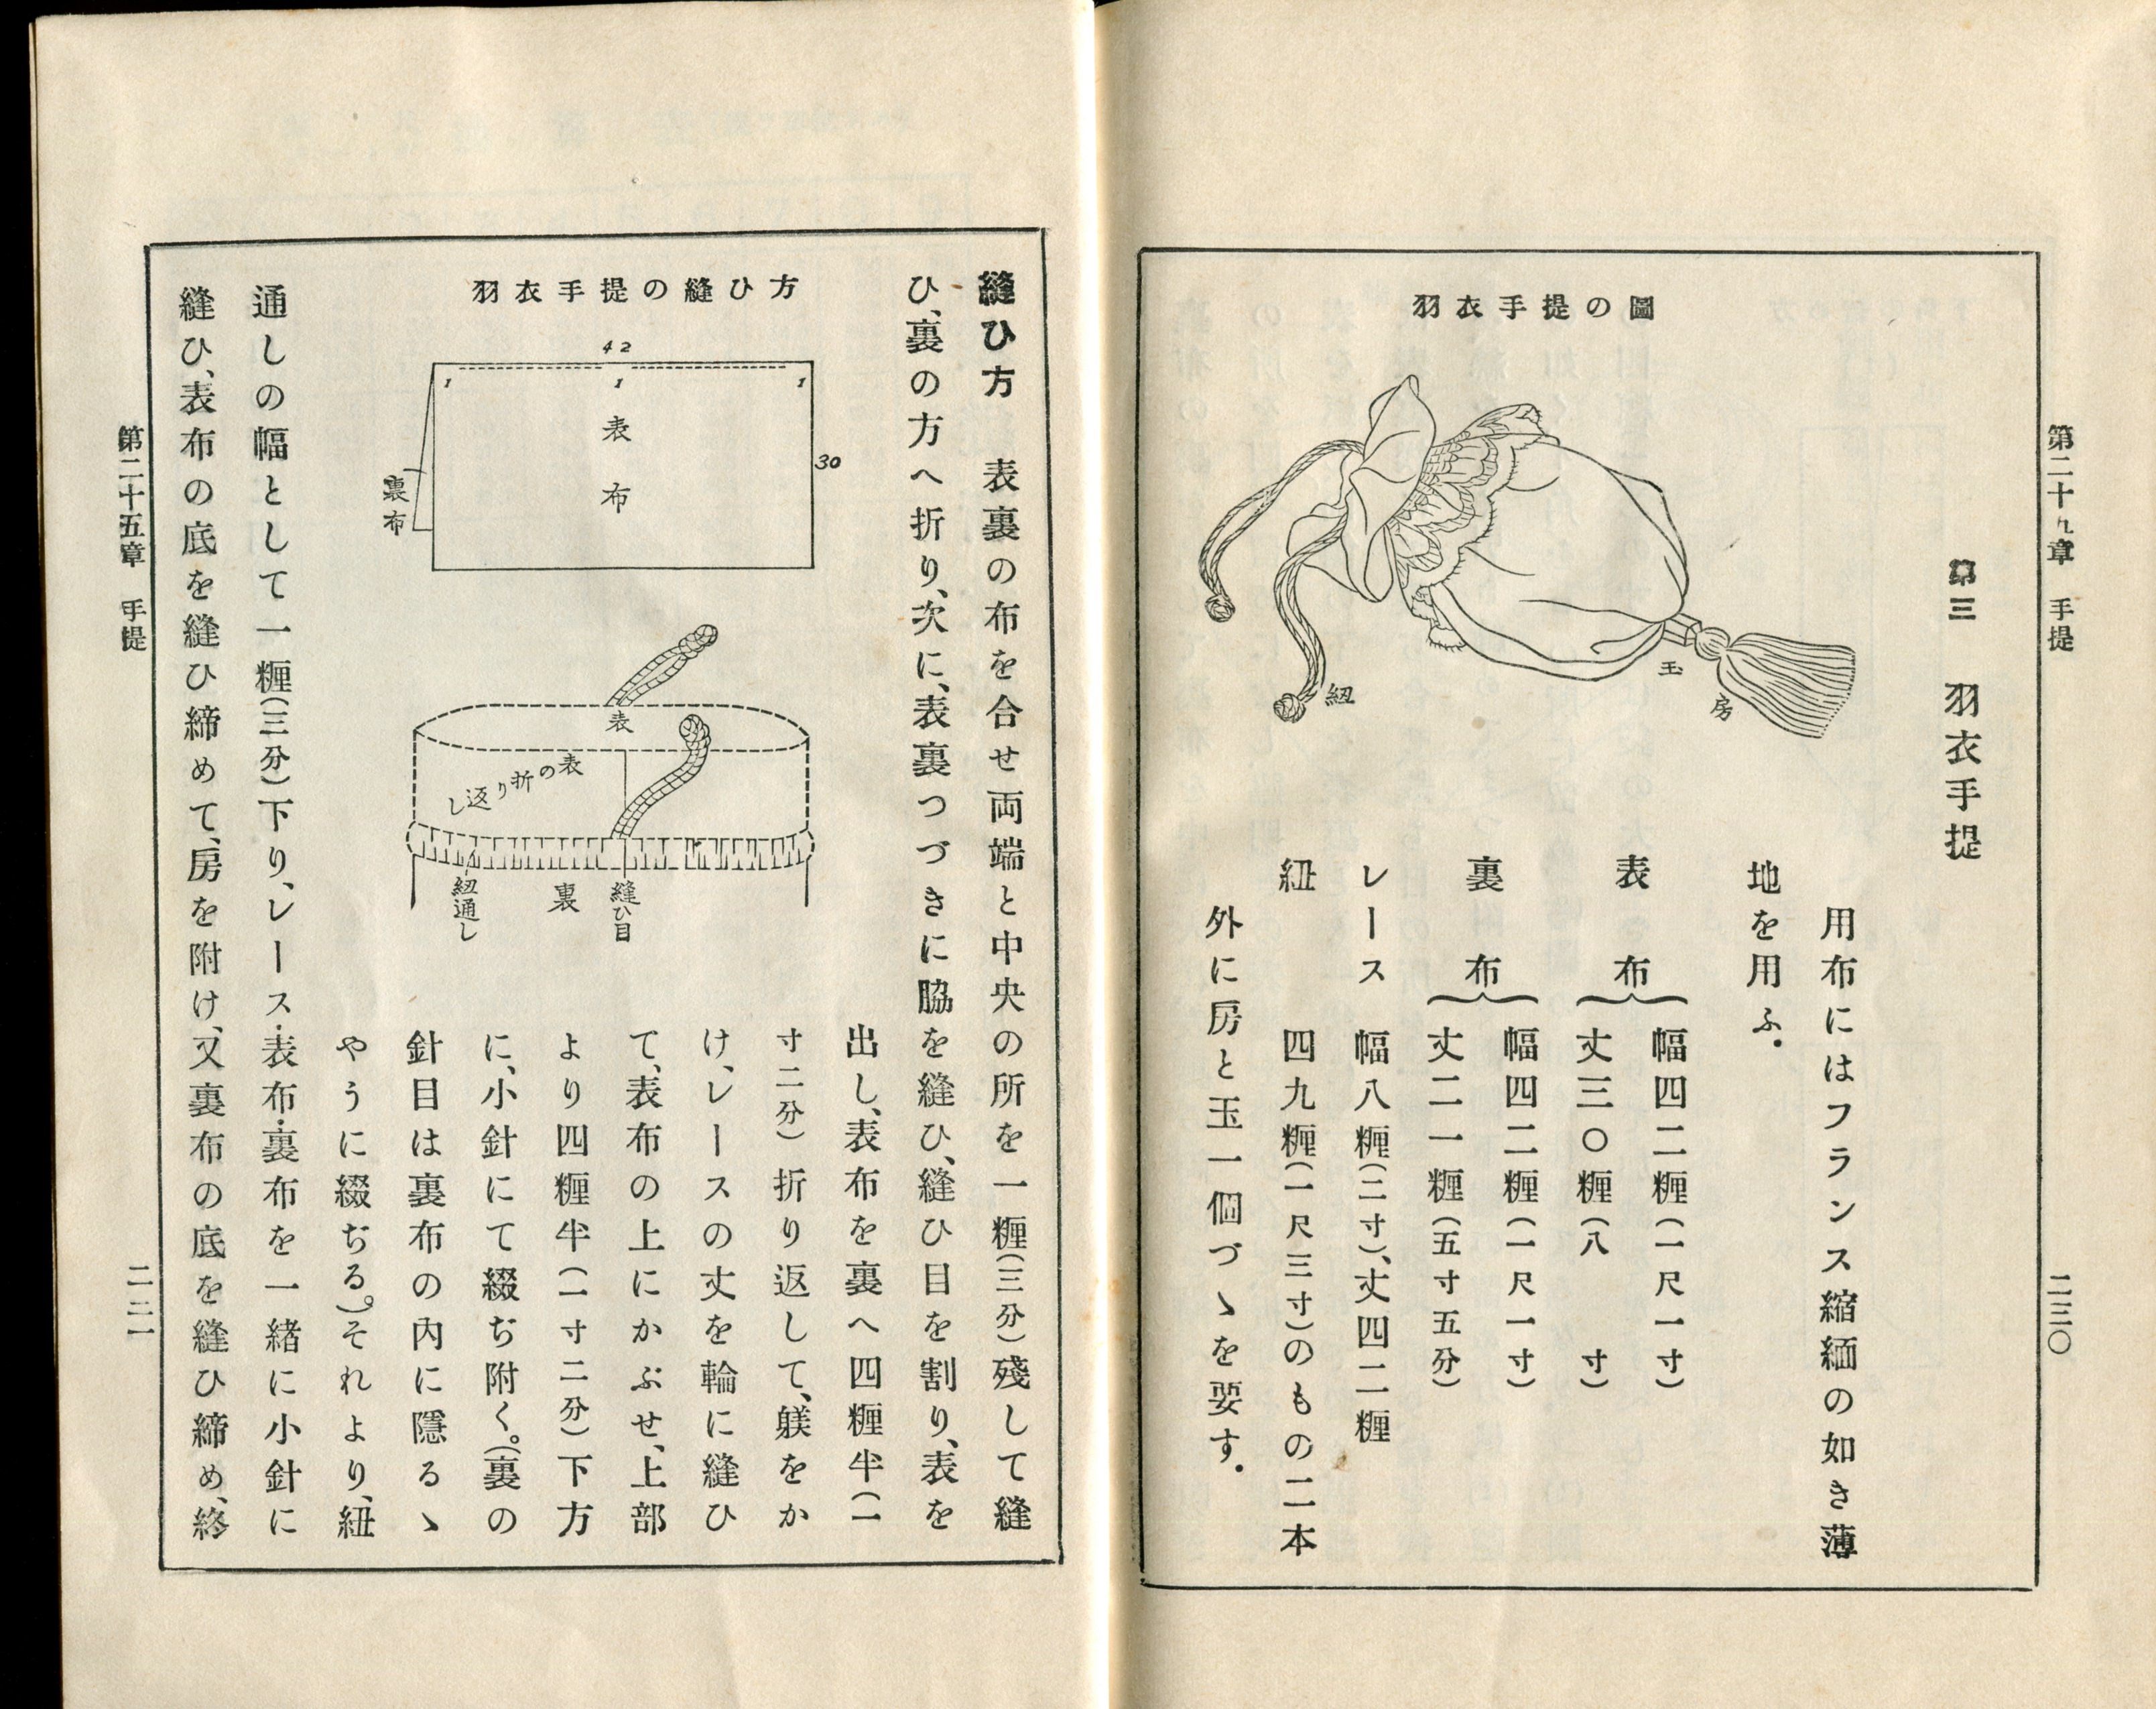 第二十五章　手提
二三〇
第三　羽衣手提
羽衣手提の圖
紐
玉
房
用布にはフランス縮緬の如き薄
地を用ふ．
表布
幅四二糎（一尺一寸）
丈三〇糎（八寸）
裏布
幅四二糎（一尺一寸）
丈二一糎（五寸五分）
レース　幅八糎（二寸）、丈四二糎
紐　四九糎（一尺三寸）のもの二本
外に房と玉一個づゝを要す．
縫ひ方　表裏の布を合せ両端と中央の所を一糎（三分）殘して縫
ひ、裏の方へ折り、次に、表裏つづきに脇を縫ひ、縫ひ目を割り、表を
羽衣手提の縫ひ方
42
1
1
1
表布
30
裏布
表
表の折り返し
紐通し
裏
縫ひ目
出し、表布を裏へ四糎半（一
寸二分）折り返して、躾をか
け、レースの丈を輪に縫ひ
て、表布の上にかぶせ、上部
より四糎半（一寸二分）下方
に、小針にて綴ぢ附く。（裏の
針目は裏布の內に隱るゝ
やうに綴ぢる。）それより、紐
通しの幅として一糎（三分）下り、レース・表布・裏布を一緒に小針に
縫ひ、表布の底を縫ひ締めて、房を附け、又裏布の底を縫ひ締め、終
第二十五章　手提